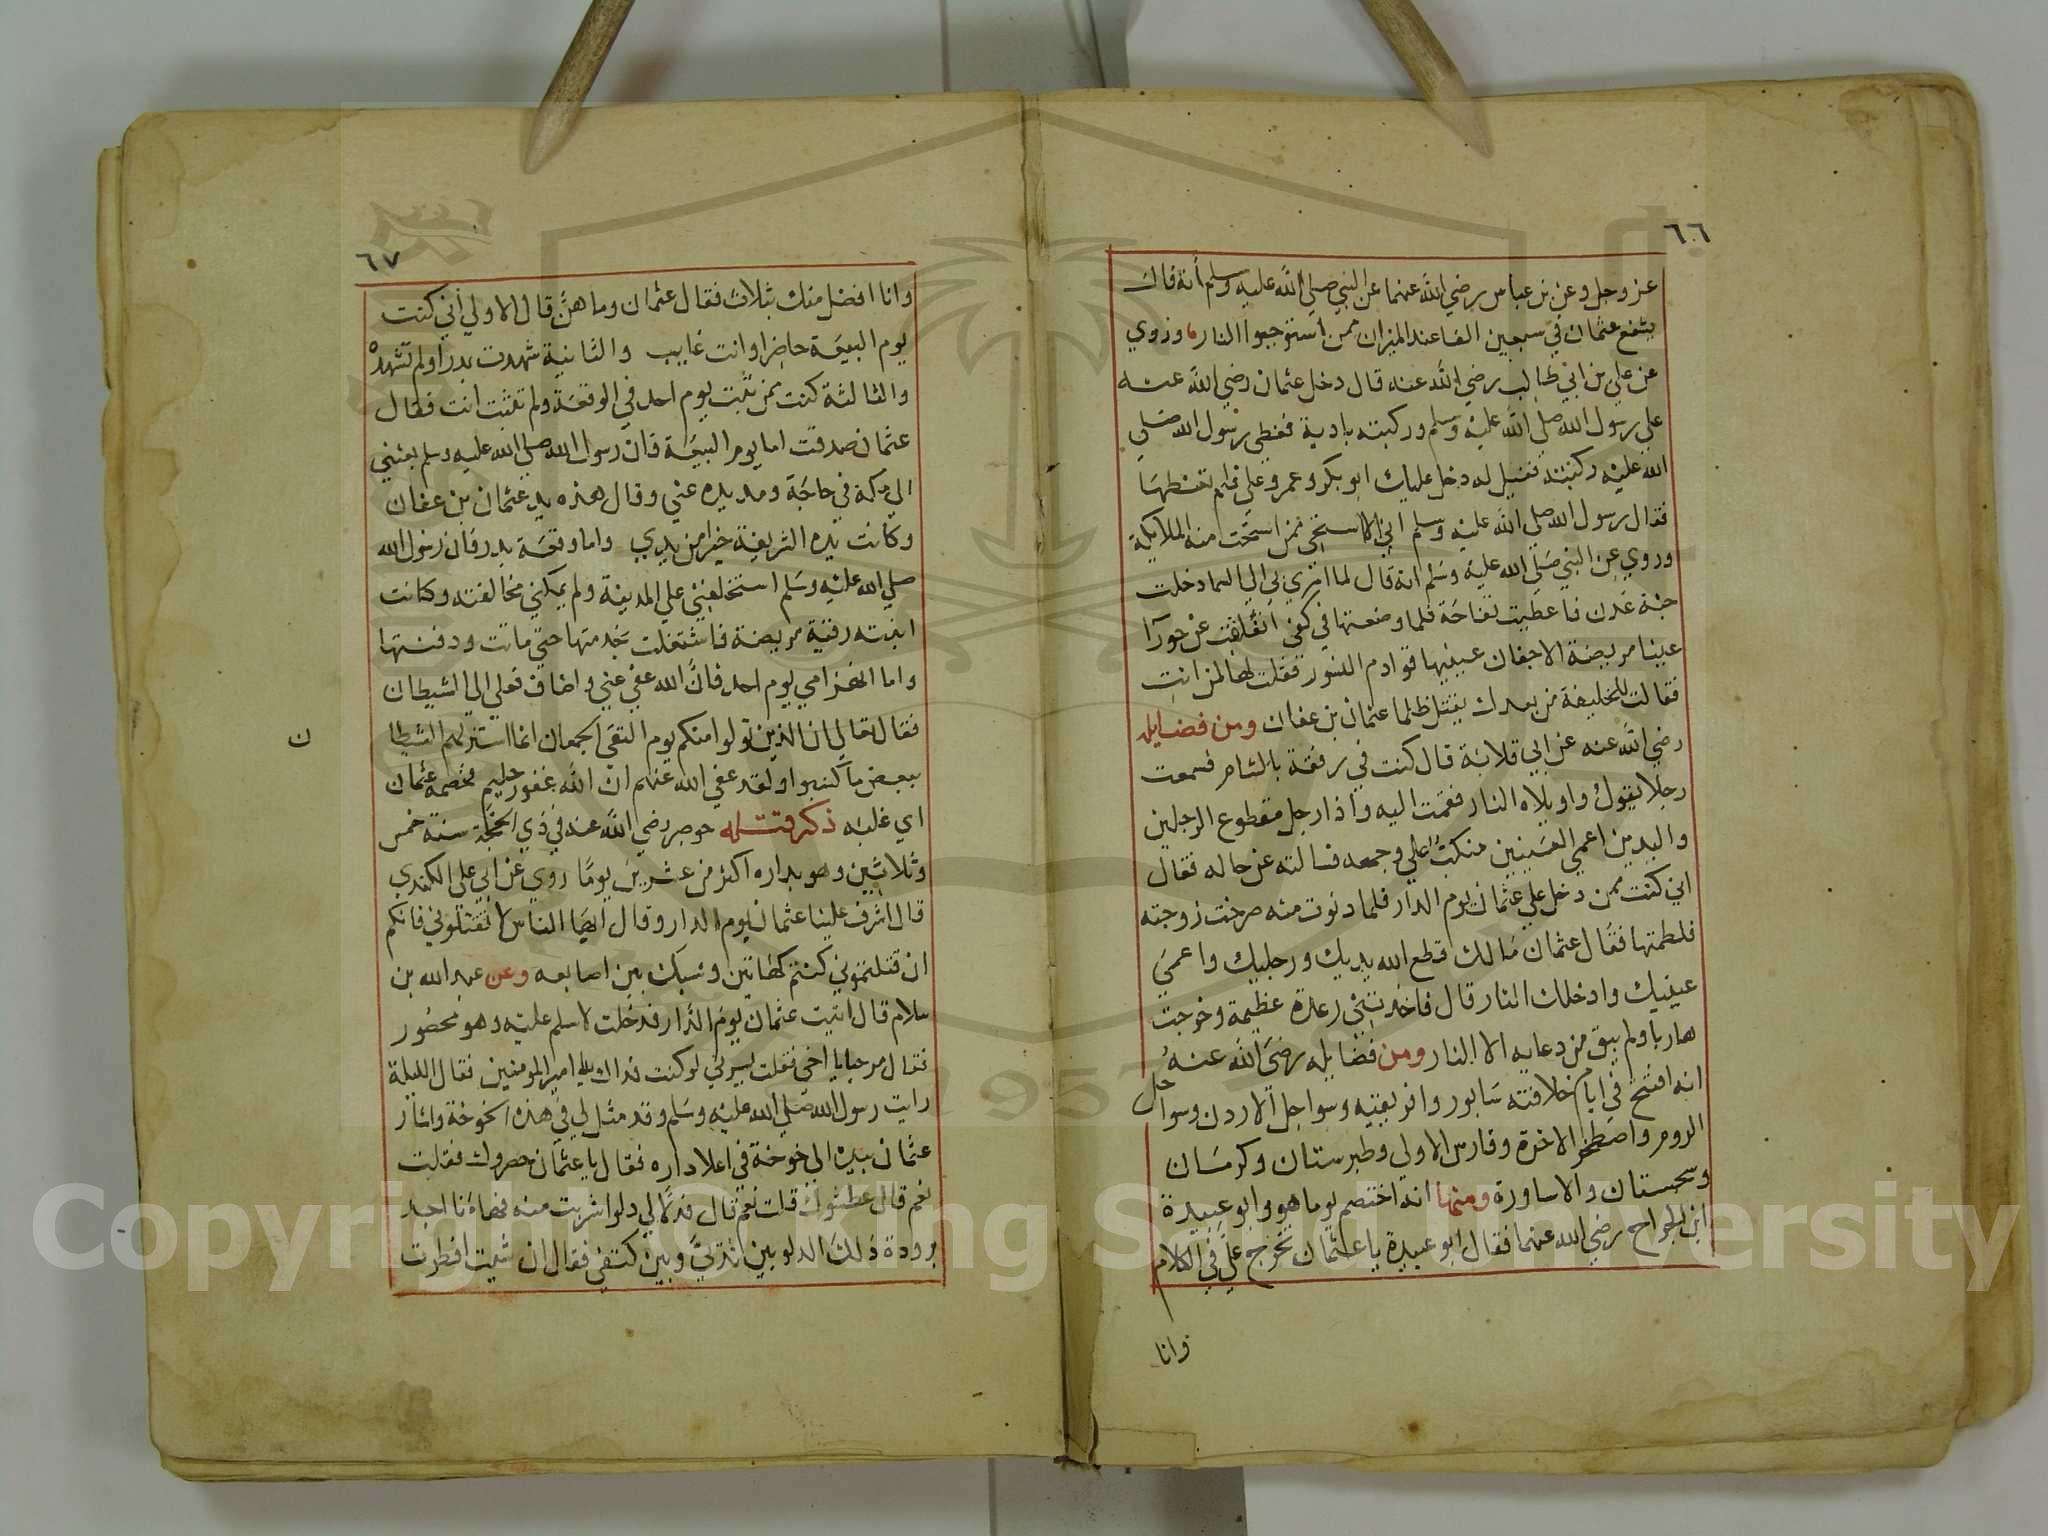 ٦٦
عز وجل وعن بن عباس رضي الله عنهما عن النبي صلي الله عليه وسلم أنه قال
يشفع عثمان في سبعين الفا عند الميزان ممن استوجبوا النار وروي
عن علي بن ابي طالب رضي الله عنه قال دخل عثمان رضي الله عنه
علي رسول الله صلي الله عليه وسلم وركبته بادية فغطي رسول الله صلي
الله عليه ركبته فقيل له دخل عليك ابو بكر وعمر وعلي فلم تغطها
فقال رسول الله صلي الله عليه وسلم اني لاستحي ممن استحت منه الملايكة
وروي عن النبي صلي الله عليه وسلم انه قال لما اسري بي الي السما دخلت
جنة عدن فاعطيت تفاحة فلما وضعتها في كفي انفلقت عن حورآ
عينا مريضة الاجفان عينيها قوادم النسور فقلت لها لمن انت
فقالت للخليفة من بعدك يقتل ظلما عثمان بن عفان ومن فضايله
رضي الله عنه عن ابي قلابة قال كنت في رفقة بالشام فسمعت
رجلا يقول واويلاه النار فقمت اليه واذا رجل مقطوع الرجلين
واليدين اعمي العينين منكب علي وجهه فسالته عن حاله فقال
اني كنت ممن دخل علي عثمان يوم الدار فلما دنوت منه صرخت زوجته
فلطمتها فقال عثمان مالك قطع الله يديك ورجليك واعمي
عينيك وادخلك النار قال فاخذتني رعدة عظيمة وخرجت
هاربا ولم يبق من دعايه الا النار ومن فضايله رضي الله عنه
انه افتتح في ايام خلافته سابور وافريقيه وسواحل الاردن وسواحل
الروم واصطخر الاخرة وفارس الاولي وطبرستان وكرمان
وسجستان والاساورة ومنها انه اختصم يوما هو وابو عبيدة
ابن الجراح رضي الله عنهما فقال ابو عبيدة يا عثمان تخرج علي في الكلام
وانا
٦٧
وانا افضل منك بثلاث فقال عثمان وما هن قال الاولي أني كنت
يوم البيعة حاضرا وانت غايب والثانية شهدت بدرا ولم تشهده
والثالثة كنت ممن ثبت يوم احد في الوقعة ولم تثبت انت فقال
عثمان صدقت اما يوم البيعة فان رسول الله صلي الله عليه وسلم بعثني
الي مكة في حاجة ومد يده عني وقال هذه يد عثمان بن عفان
وكانت يده الشريفة خيرا من يدي واما وقعة بدر فان رسول الله
صلي الله عليه وسلم استخلفني علي المدينة ولم يمكني مخالفته وكانت
ابنته رقية مريضة فاشتغلت بخدمتها حتي ماتت ودفنتها
واما انهزامي يوم احد فان الله عفي عني واضاف فعلي الي الشيطان
فقال تعالي ان الذين تولوا منكم يوم التقي الجمعان انما استزلهم الشيطا
ن
ببعض ما كسبوا ولقد عفي الله عنهم ان الله غفور حليم فخصمه عثمان
اي غلبه ذكر قتله حوصر رضي الله عنه في ذي الحجة سنة خمس
وثلاثين وهو بداره اكثر من عشرين يوما روي عن ابي علي الكندي
قال اشرف علينا عثمان يوم الدار وقال ايها الناس لا تقتلوني فانكم
ان قتلتموني كنتم كهاتين وشبك بين اصابعه وعن عبد الله بن
سلام قال اتيت عثمان يوم الدار فدخلت لاسلم عليه وهو محصور
فقال مرحبا يا اخي فقلت يسرني لو كنت فداك يا امير المومنين فقال الليلة
رايت رسول الله صلي الله عليه وسلم وقد مثل لي في هذه الخوخة واشار
عثمان بيده الي خوخة في اعلا داره فقال يا عثمان حصروك فقلت
نعم قال عطشوك قلت نعم قال فدلا لي دلوا شربت منه فها انا اجد
برودة ذلك الدلو بين ثديي وبين كتفي فقال ان شيت افطرت
Copyright © King Saud University
1957